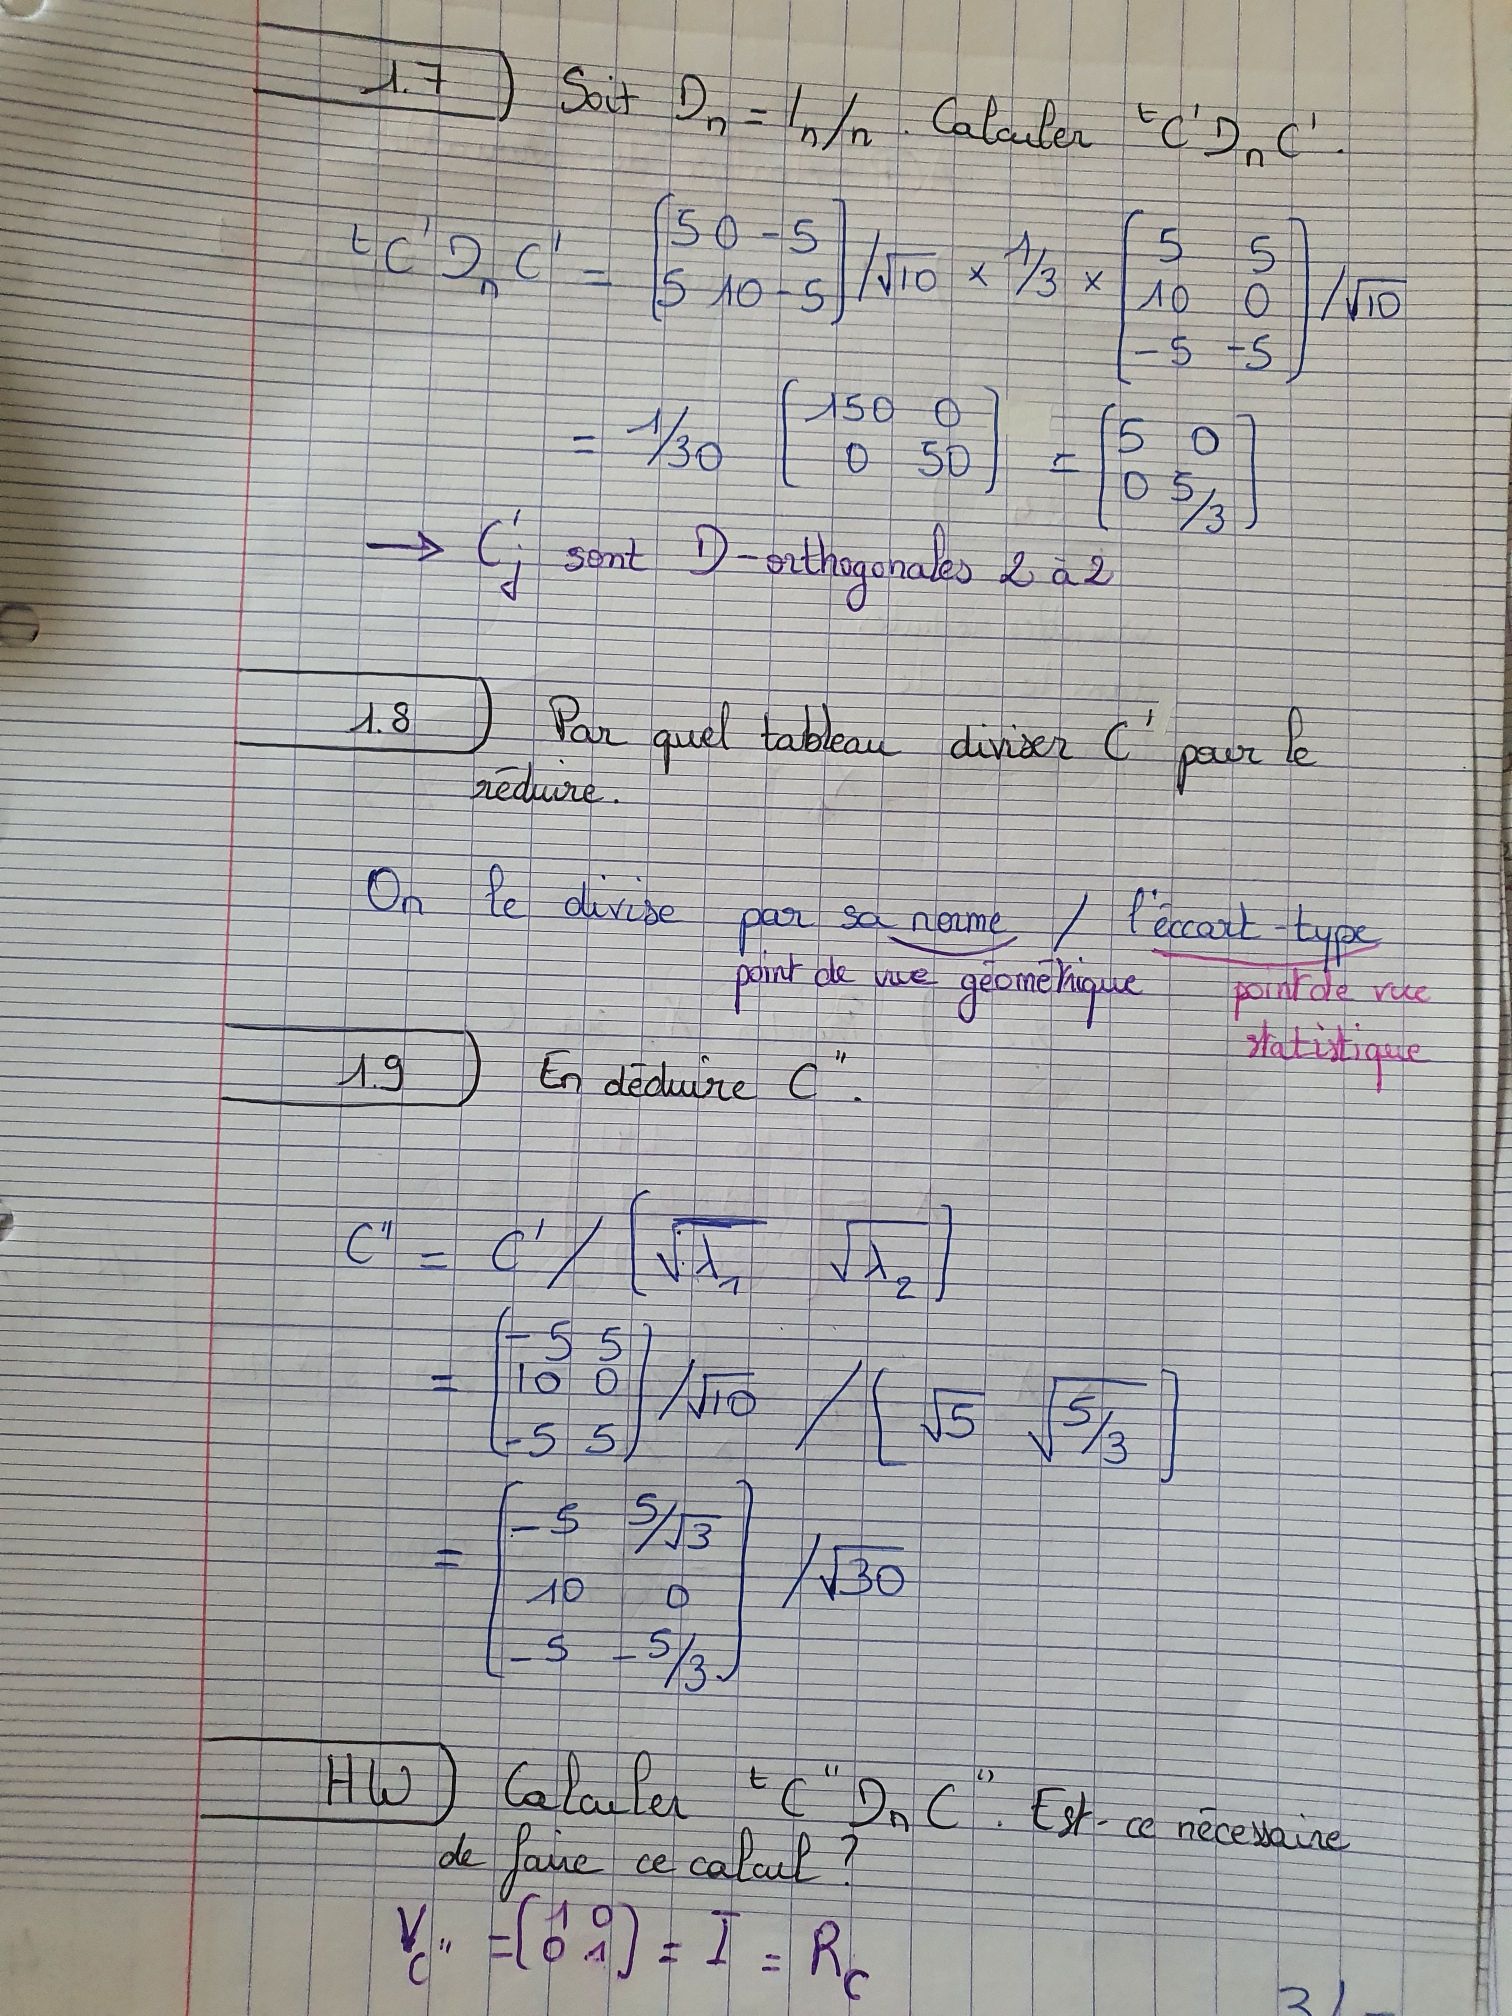 1.7) Soit Dn = In/n. Calculer ᵗC'DnC'.
ᵗC'DnC' = [5 0 -5; 5 10 -5]/√10 × 1/3 × [5 5; 10 0; -5 -5]/√10
= 1/30 [150 0; 0 50] = [5 0; 0 5/3]
→ C'j sont D-orthogonales 2 à 2
1.8) Par quel tableau diviser C' pour le
réduire.
On le divise par sa norme / l'éccart-type
point de vue géométrique point de vue
statistique
1.9) En déduire C".
C" = C' / [√λ1 √λ2]
= [-5 5; 10 0; -5 5]/√10 / [√5 √5/3]
= [-5 5/√3; 10 0; -5 -5/3] /√30
HW) Calculer ᵗC"DnC". Est-ce nécessaire
de faire ce calcul?
Vc" = (1 0; 0 1) = I = Rc